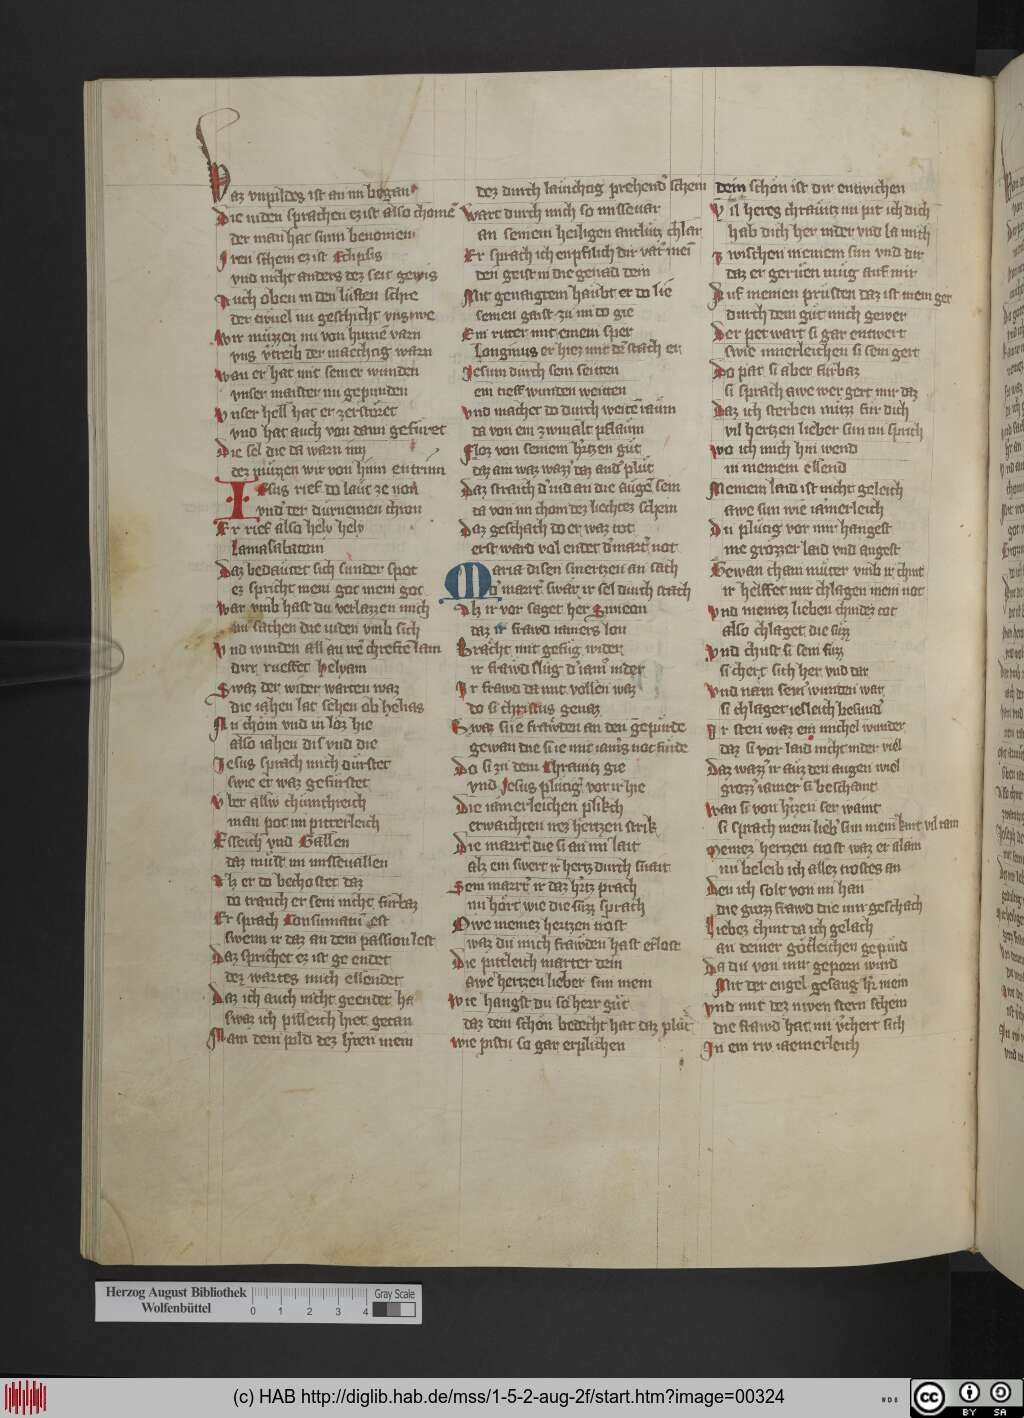 Daz unpildes ist an im began
Die iuden sprachen ez ist also chome
der man hat sinn benomen
Iren schein ez ist Eclipsis
und nicht anders dez seit gewis
Auch oben in den lüften schre
der tiwel nu geschicht uns we
Wir müzzen nu von hinne varn
uns vtreib der maechtig warn
Wan er hat mit seiner wunden
unser maister nu gepunden
Unser hell hat er zerstöret
und hat auch von dann gefüret
Die sel die da warn inn
dez müzzen wir von hinn entrinn
Iesus rief do laut ze non
und der dürneinen chron
Er rief also hely hely
Lamasabatani
Daz bedäutet sich sunder spot
ez spricht mein got mein got
War umb hast du verlazzen mich
zu sachen die iuden umb sich
Und wunden all au
dirr rueffet helyam
Swaz der wider warten waz
die iahen lat sehen ob helias
Nu chom und in löz hie
also iahen dis und die
Iesus sprach mich dürstet
swie er waz gefürstet
Uber alliv chünichreich
man pot im pitterleich
Esseich und Gallen
daz müst im missevallen
Alz er do bechostet daz
do tranch er sein nicht fürbaz
Er sprach Consumatum est
swenn ir daz an dem passion lest
Daz sprichet ez ist ge endet
dez wartes mich ellendet
Daz ich auch nicht geendet ha
swaz ich pilleich hiet getan
Nam dem pild dez hrren mein
dez durch lauchtig prehend schein
Wart durch mich so missevar
an seinem heiligen antlutz chlar
Er sprach ich enpfilich dir vat mei
den geist in die genad dein
Mit genaigtem haubt er do lie
seinen gaist zu im do gie
Ein ritter mit einem sper
Longinus er hiez mit de stach er
Iesum durch sein seitten
ein tieff wunden weitten
Und machet do durch weite raum
da von ein zwivalt pflaum
Floz von seinem hrtzen güt
daz ain waz wazz daz and plüt
Daz straich d ind an die auge sein
da von im chom dez liechtez schein
Daz geschach do er waz tot
erst ward vol endet d mart not
Maria disen smertzen an sach
d martt swar ir sel durch stach
Alz ir vor saget her Simeon
daz ir frawd iamers lon
Bracht mit gefüg wider
ir frawd slüg d iam nider
Ir frawd da mit vollen waz
do si christus genaz
Swaz si ie frawden an den gepürde
gewan die si ie mit iams not fünde
Do si zu dem Chrawtz gie
und Iesus plütig vor ir hie
Die iamerleichen plikch
erwaichten irez hertzen strik
Die martt die si an im lait
alz ein swert ir hertz durch snait
Sein martt ir daz hrtz prach
nu hört wie die süzz sprach
Owe meinez hertzen trost
waz du mich frawden hast erlost
Die pitterleich marter dein
awe hertzen lieber sun mein
Wie hangst du so herr güt
daz dein schön bedecht hat daz plüt
Wie pistu so gar erplichen
dein schön ist dir entwichen
Vil heres chräutz nu pit ich dich
hab dich her nider und la mich
Zwischen meinem sun und dir
daz er gerüen müg auf mir
Auf meinen prüsten daz ist mein ger
durch dein güt mich gewer
Der pet wart si gar entwert
swie innerleichen si sein gert
Do pat si aber fürbaz
si sprach awe wer gert mir daz
Daz ich sterben müzz für dich
vil hertzen lieber sun nu sprich
Wo ich mich hin wend
in meinem ellend
Meinem laid ist nicht geleich
awe sun wie iamerleich
Du plütig vor mir hangest
nie grözzer laid und angest
Gewan chain müter umb ir chint
ir helffet mir chlagen mein not
Und meinez lieben chindez tot
also chlaget die süzz
Und chust si sein füzz
si chert sich her und dar
Und nam sein wunden war
si chlaget iesleich besund
Ir sten waz ein michel wunder
daz si vor laid nicht nider viel
Daz wazz ir auz den augen wiel
grozz iamer si beschaut
Wan si von hrtzen ser waint
si sprach mein lieb sun mein kint vil rain
Meinez hertzen trost waz er alain
nu beleib ich allez trostes an
Den ich solt von im han
die grozz frawd die mir geschach
Liebez chint da ich gelach
an deiner götleichen gepürd
Da du von mir geporn wurd
Mit der engel gesang hr mein
Und mit dez niwen stern schein
die frawd hat nu vchert sich
In ein riw iaemerleich
Herzog August Bibliothek
Wolfenbüttel
0 1 2 3 4
Gray Scale
(c) HAB http://diglib.hab.de/mss/1-5-2-aug-2f/start.htm?image=00324
cc BY SA